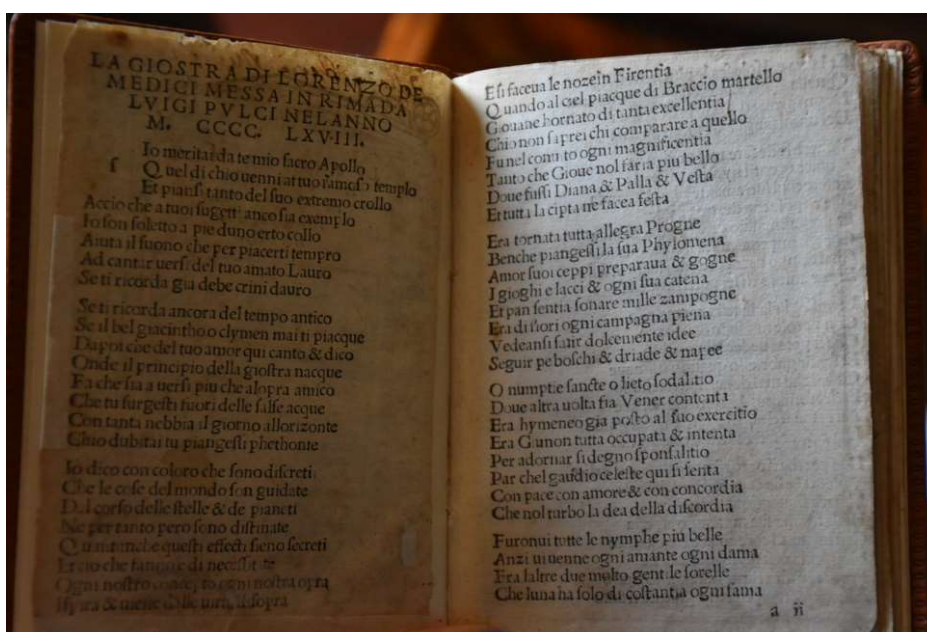 LA GIOSTRA DI LORENZO DE
MEDICI MESSA IN RIMA DA
LVIGI PVLCI NEL ANNO
M. CCCC. LXVIII.
Io meritai da te mio sacro Apollo
ſ Quel di chio uenni al tuo famoſo templo
Et pianſi tanto del ſuo extremo crollo
Accio che a tuoi ſugetti anco ſia exemplo
Io ſon ſoletto a pie duno erto collo
Aiuta il ſuono che per piacerti tempro
Ad cantar uerſi del tuo amato Lauro
Se ti ricorda gia debe crini dauro
Se ti ricorda ancora del tempo antico
Se il bel giacintho o clymen mai ti piacque
Dapoi che del tuo amor qui canto & dico
Onde il principio della gioſtra nacque
Fa che ſia a uerſi piu che alopra amico
Che tu ſurgeſti fuori delle ſalſe acque
Con tanta nebbia il giorno allorizonte
Chio dubitai tu piangeſſi phethonte
Io dico con coloro che ſono diſcreti
Che le coſe del mondo ſon guidate
Dal corſo delle ſtelle & de pianeti
Ne per tanto pero ſono diſtinate
Quantunche queſti effecti ſieno ſecreti
Et cio che fanno e di neceſſitate
Ogni noſtro concepto ogni noſtra opra
di ſopra
E ſi faceua le noze in Firentia
Quando al ciel piacque di Braccio martello
Giouane hornato di tanta excellentia
Chio non ſaprei chi comparare a quello
Fu nel conuito ogni magnificentia
Tanto che Gioue nol faria piu bello
Doue fuſſi Diana & Palla & Veſta
Et tutta la cipta ne facea feſta
Era tornata tutta allegra Progne
Benche piangeſſi la ſua Phylomena
Amor ſuoi ceppi preparaua & gogne
I gioghi e lacci & ogni ſua catena
Et pan ſentia ſonare mille zampogne
Era di fiori ogni campagna piena
Vedeanſi ſatir dolcemente idee
Seguir pe boſchi & driade & napee
O numptie ſancte o lieto ſodalitio
Doue altra uolta fia Vener contenta
Era hymeneo gia poſto al ſuo exercitio
Era Giunon tutta occupata & intenta
Per adornar ſi degno ſponſalitio
Par chel gaudio celeſte qui ſi ſenta
Con pace con amore & con concordia
Che nol turbo la dea della diſcordia
Furonui tutte le nymphe piu belle
Anzi ui uenne ogni amante ogni dama
Fra laltre due molto gentile ſorelle
Che luna ha ſolo di coſtantia ogni fama
a ii